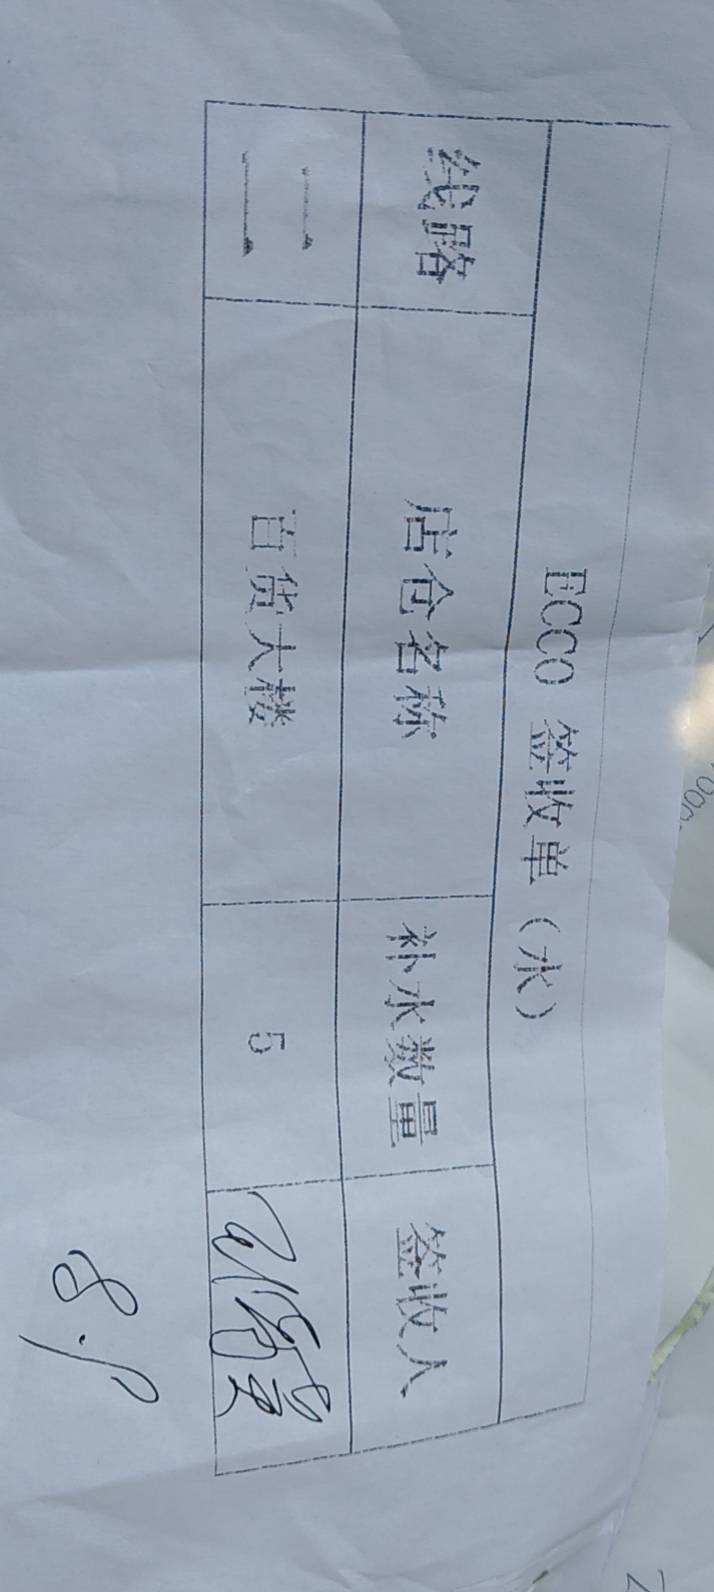 ECCO 签收单（水）
线路 店仓名称 补水数量 签收人
二 百货大楼 5